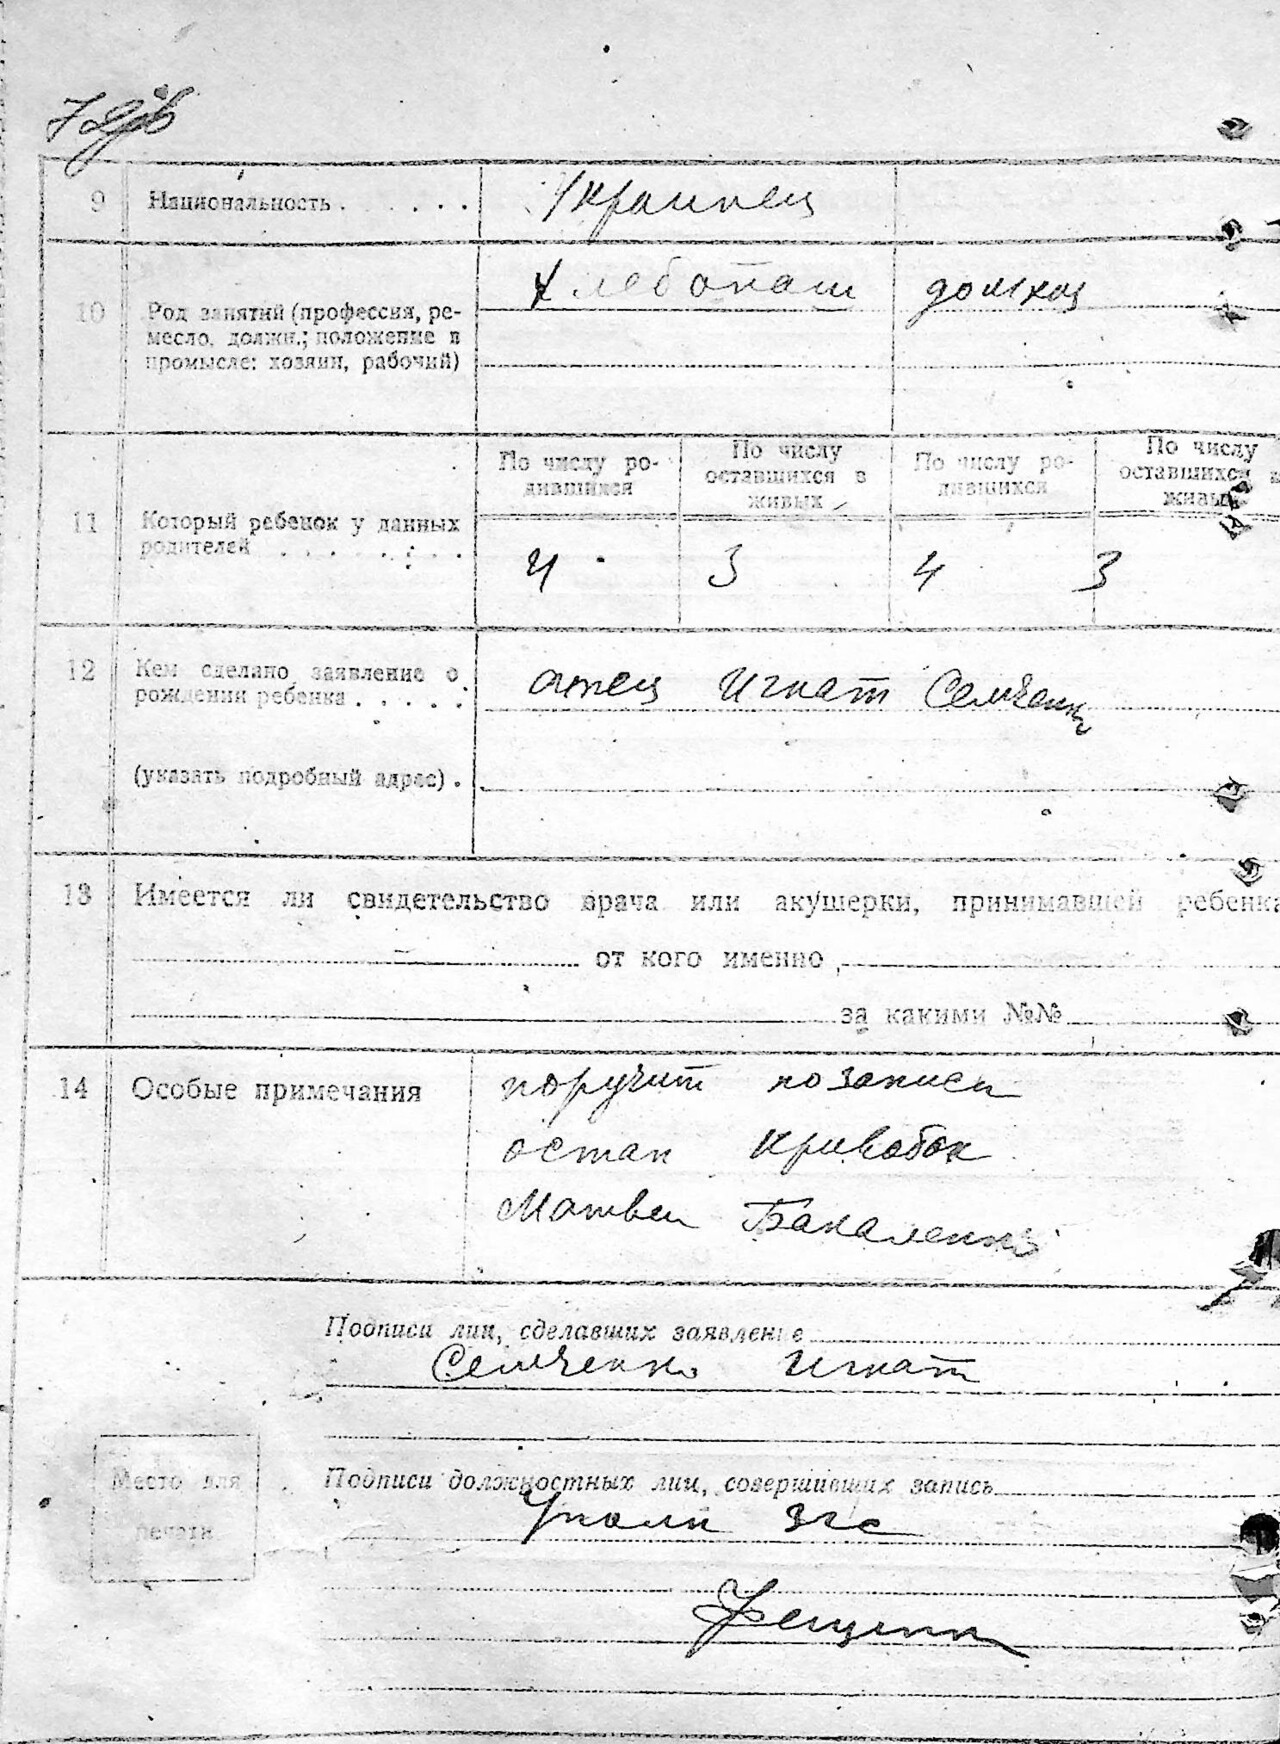 9 Национальность . . . . . . Украинец
10 Род занятий (профессия, ре-
месло, должн.; положение в
промысле: хозяин, рабочий)
Хлебопаш домхоз
11 Который ребенок у данных
родителей . . . . . . .
По числу ро-
дившихся
По числу
оставшихся в
живых
По числу ро-
дившихся
По числу
оставшихся в
живых
4 3 4 3
12 Кем сделано заявление о
рождении ребенка . . . . .
отец Игнат Семченко
(указать подробный адрес) .
13 Имеется ли свидетельство врача или акушерки, принимавшей ребенка
от кого именно
за какими №№
14 Особые примечания
поручит по записи
остап Кривобок
Матвеи Бакаленко
Подписи лиц, сделавших заявление
Семченко Игнат
Место для
печати
Подписи должностных лиц, совершивших запись
загс